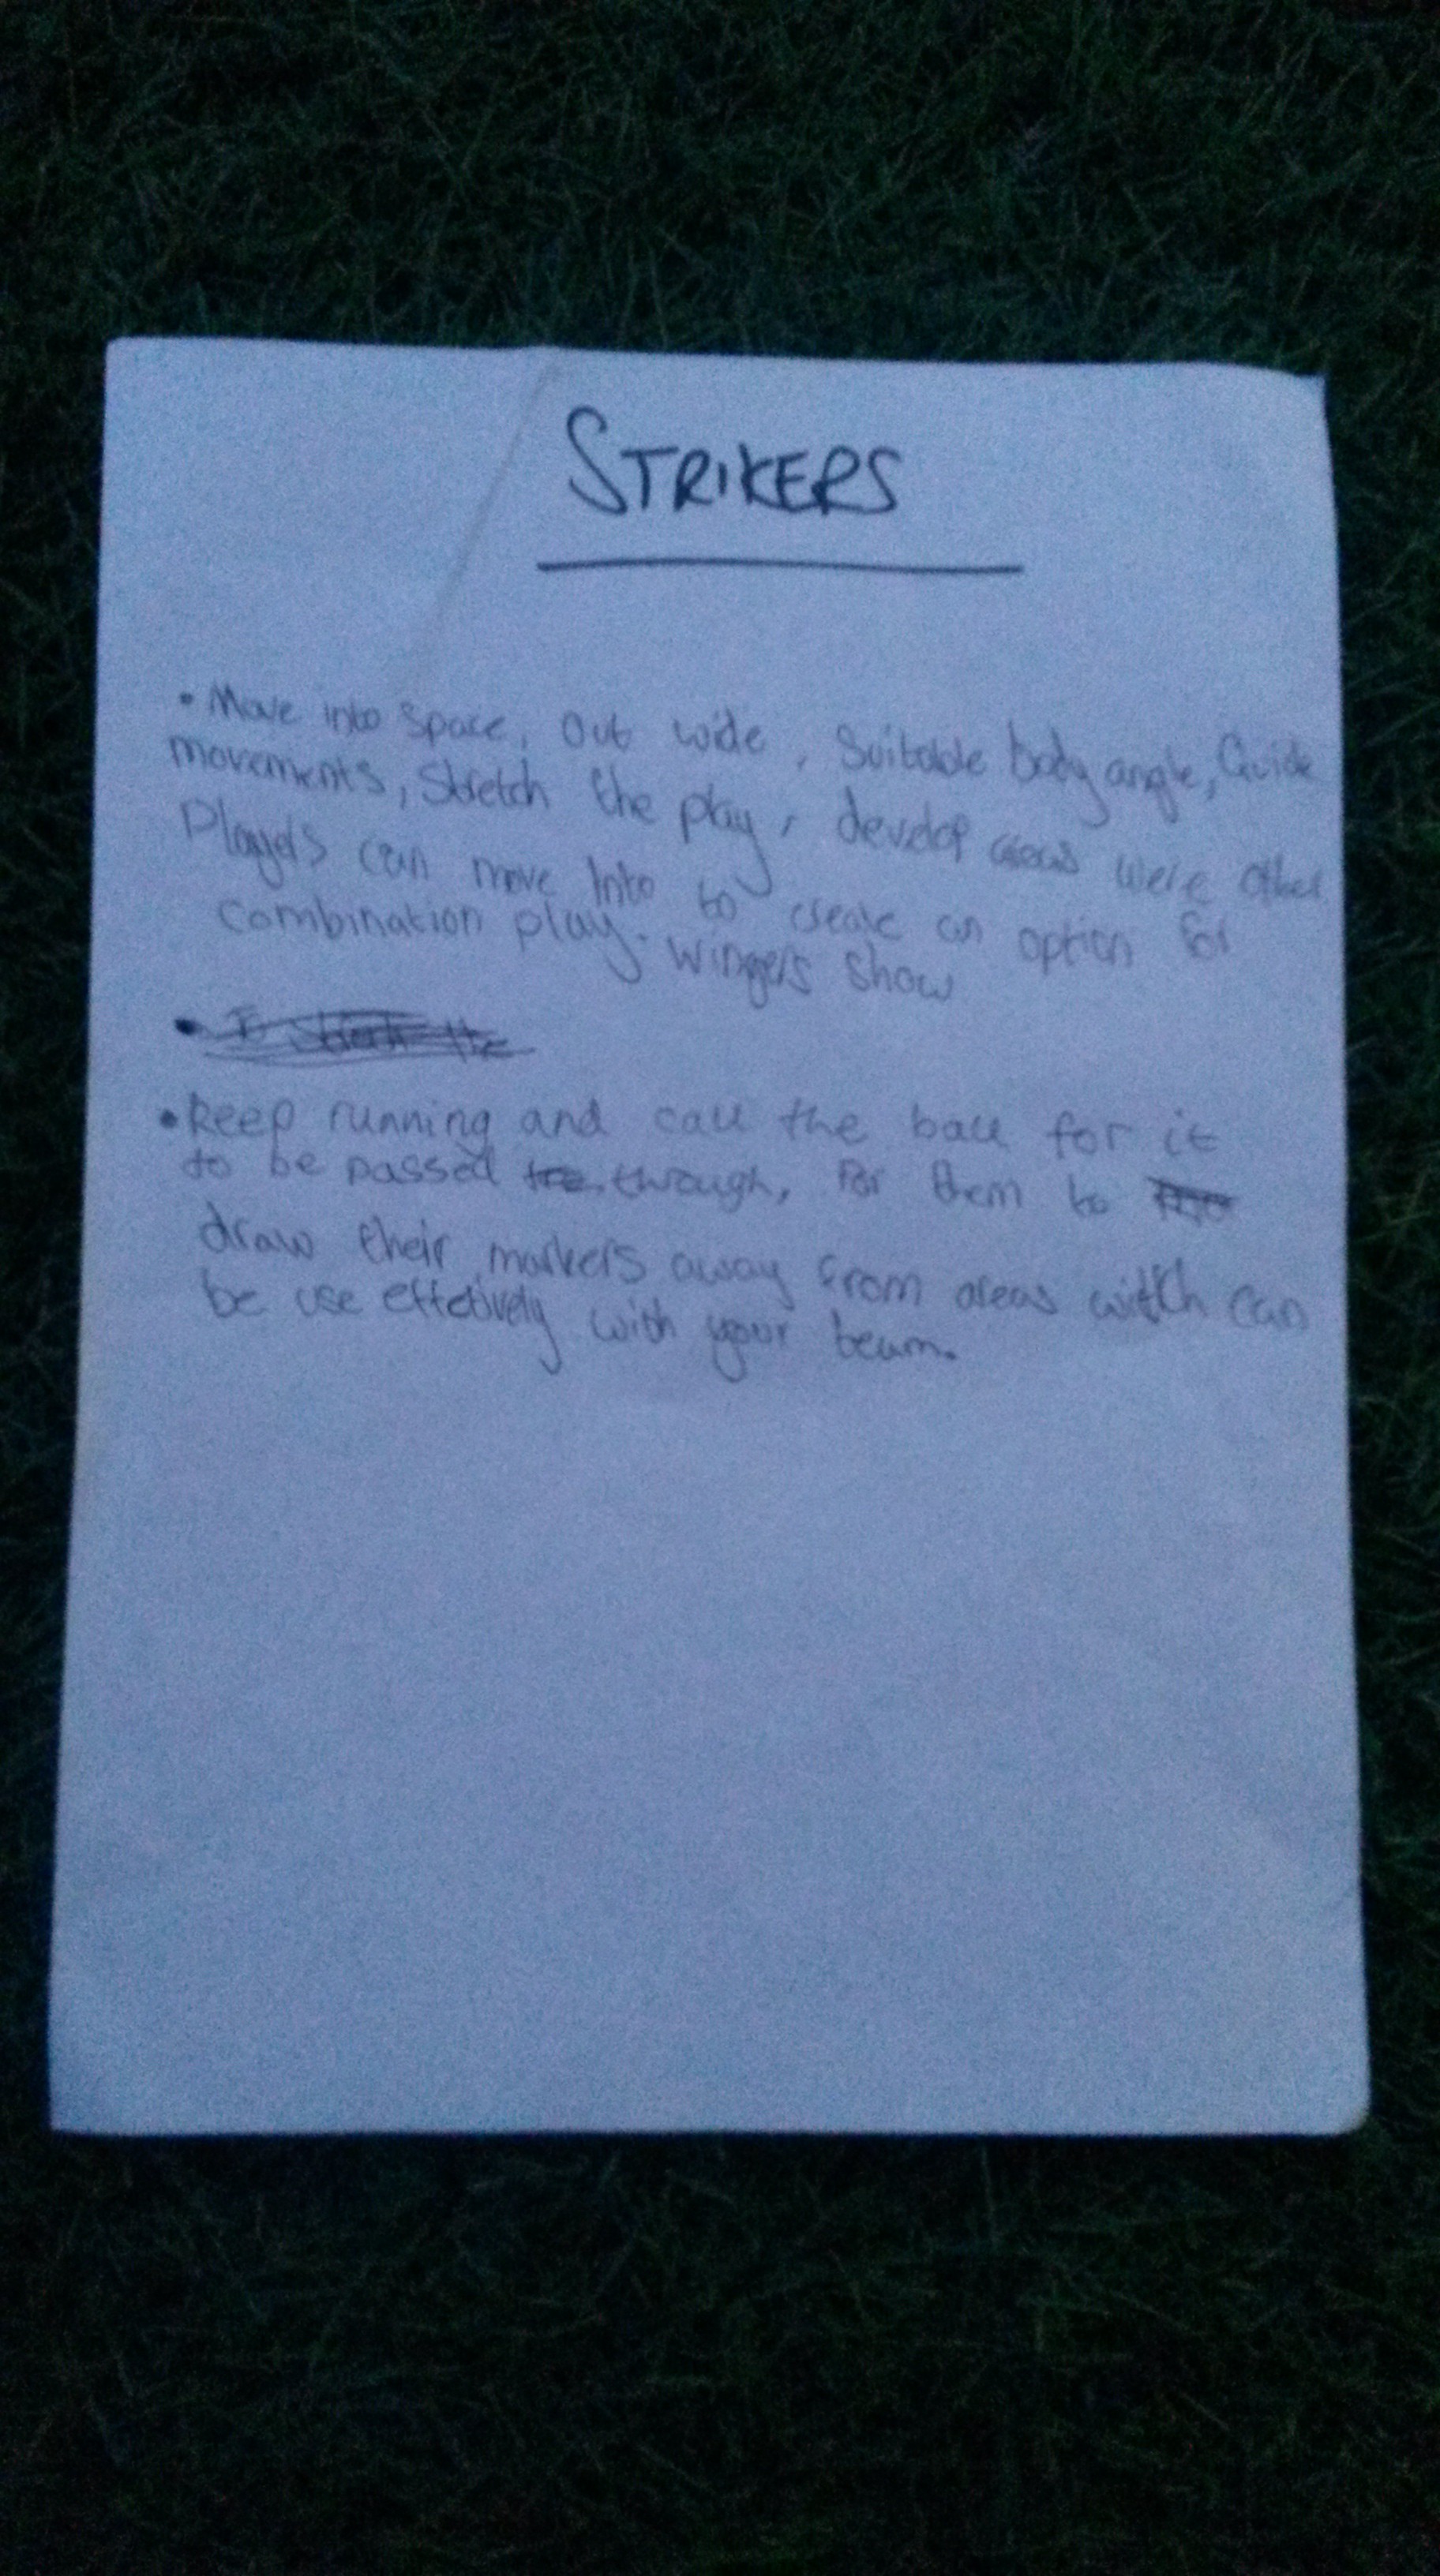 STRIKERS
• Move into space, Out wide, Suitable body angle, Quick
movements, Stretch the play, develop areas were other
Players can move Into to create an option for
combination play. wingers show
•
• keep running and call the ball for it
to be passed through, For them to
draw their markers away from areas witch can
be use effetively with your team.